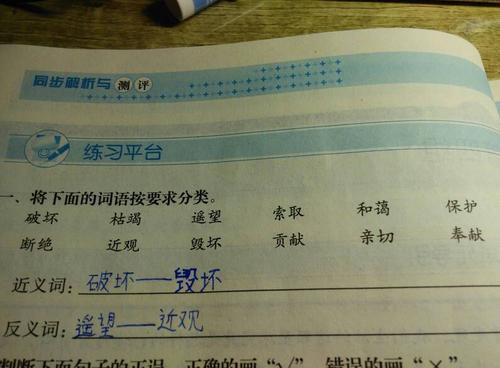 同步解析与测评
练习平台
一、将下面的词语按要求分类。
破坏 枯竭 遥望 索取 和蔼 保护
断绝 近观 毁坏 贡献 亲切 奉献
近义词：破坏——毁坏
反义词：遥望——近观
判断下面句子的正误，正确的画“√”，错误的画“×”。